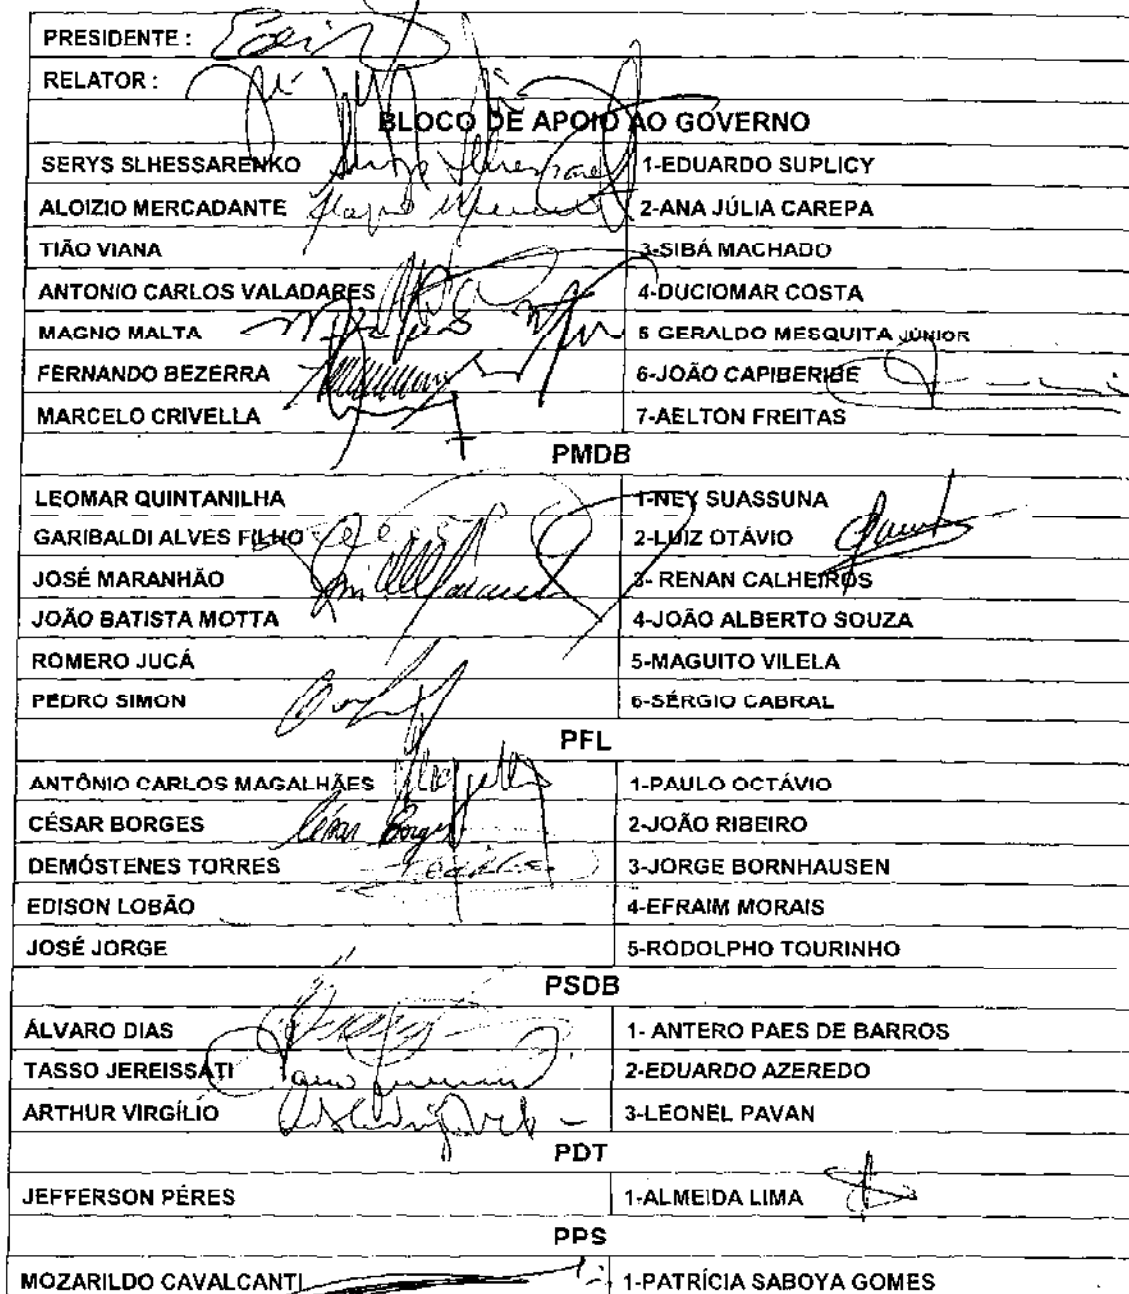 PRESIDENTE :
RELATOR :
BLOCO DE APOIO AO GOVERNO
SERYS SLHESSARENKO 1-EDUARDO SUPLICY
ALOIZIO MERCADANTE 2-ANA JÚLIA CAREPA
TIÃO VIANA 3-SIBÁ MACHADO
ANTONIO CARLOS VALADARES 4-DUCIOMAR COSTA
MAGNO MALTA 5 GERALDO MESQUITA JÚNIOR
FERNANDO BEZERRA 6-JOÃO CAPIBERIBE
MARCELO CRIVELLA 7-AELTON FREITAS
PMDB
LEOMAR QUINTANILHA 1-NEY SUASSUNA
GARIBALDI ALVES FILHO 2-LUIZ OTÁVIO
JOSÉ MARANHÃO 3- RENAN CALHEIROS
JOÃO BATISTA MOTTA 4-JOÃO ALBERTO SOUZA
ROMERO JUCÁ 5-MAGUITO VILELA
PEDRO SIMON 6-SÉRGIO CABRAL
PFL
ANTÔNIO CARLOS MAGALHÃES 1-PAULO OCTÁVIO
CÉSAR BORGES César Borges 2-JOÃO RIBEIRO
DEMÓSTENES TORRES 3-JORGE BORNHAUSEN
EDISON LOBÃO 4-EFRAIM MORAIS
JOSÉ JORGE 5-RODOLPHO TOURINHO
PSDB
ÁLVARO DIAS 1- ANTERO PAES DE BARROS
TASSO JEREISSATI 2-EDUARDO AZEREDO
ARTHUR VIRGÍLIO 3-LEONEL PAVAN
PDT
JEFFERSON PÉRES 1-ALMEIDA LIMA
PPS
MOZARILDO CAVALCANTI 1-PATRÍCIA SABOYA GOMES